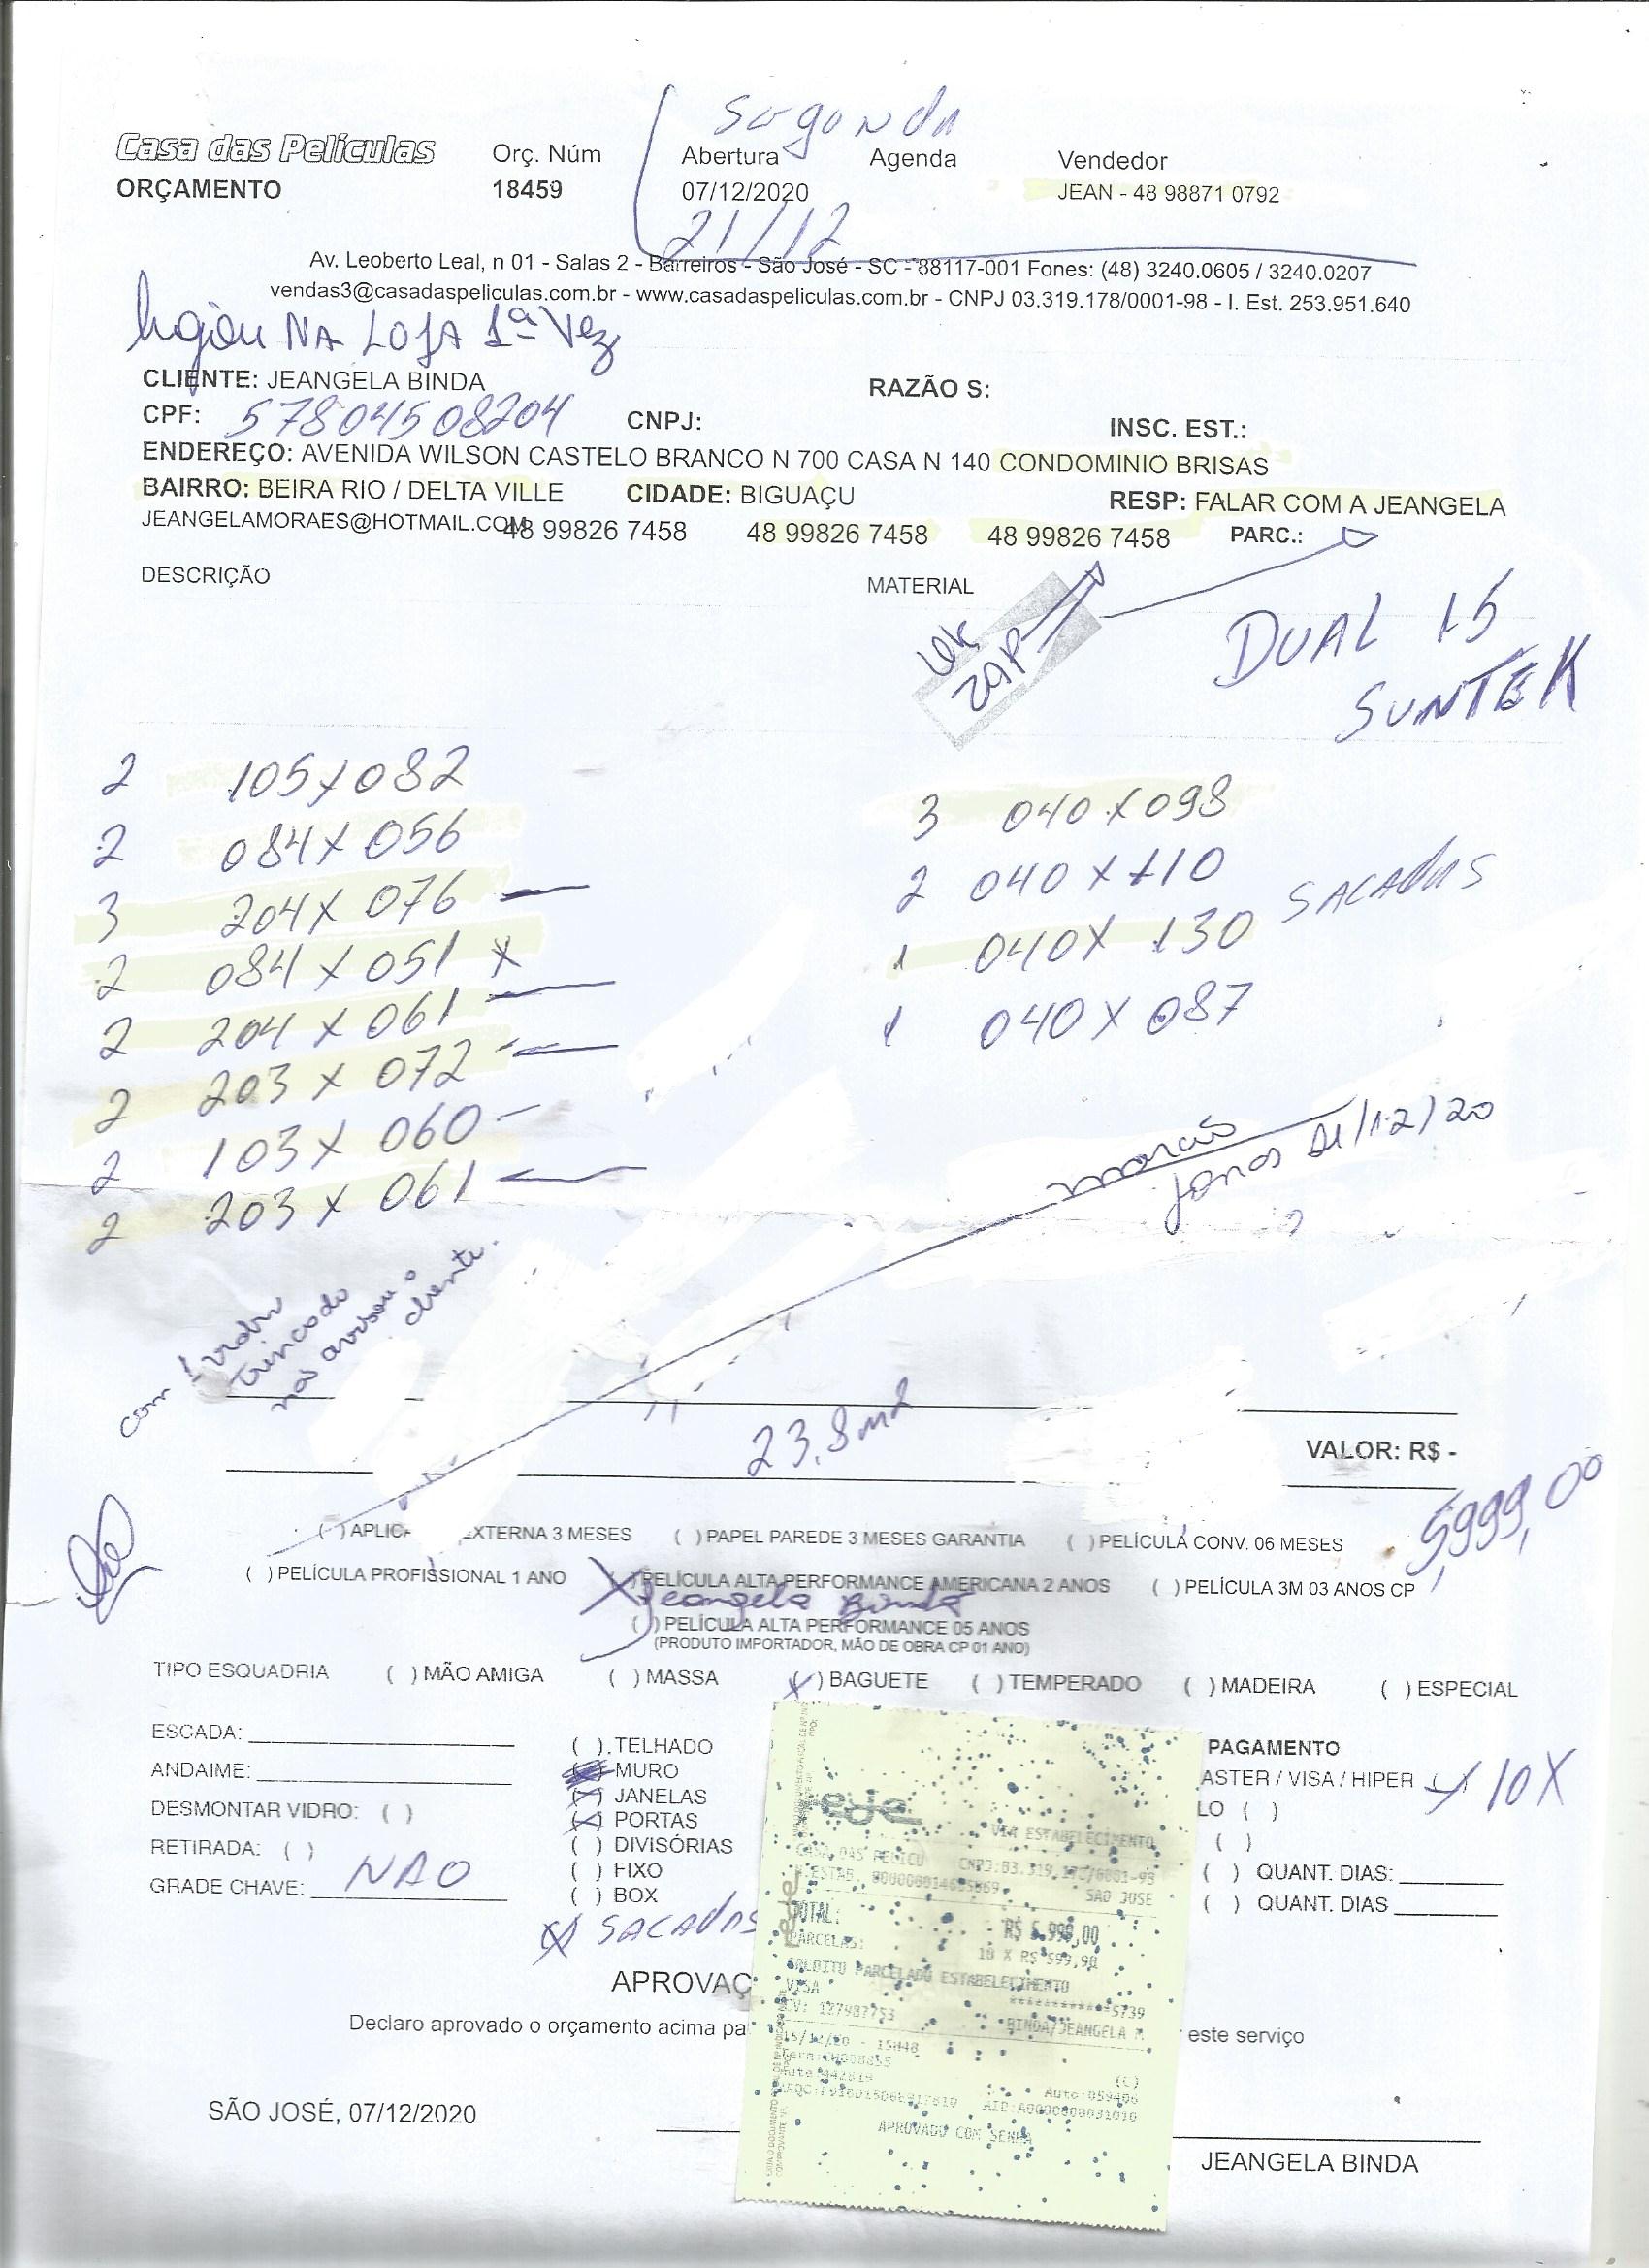 Segunda
Casa das Películas Orç. Núm Abertura Agenda Vendedor
ORÇAMENTO 18459 07/12/2020 JEAN - 48 98871 0792
21/12
Av. Leoberto Leal, n 01 - Salas 2 - Barreiros - São José - SC - 88117-001 Fones: (48) 3240.0605 / 3240.0207
vendas3@casadaspeliculas.com.br - www.casadaspeliculas.com.br - CNPJ 03.319.178/0001-98 - I. Est. 253.951.640
ligou NA LOJA 1ª Vez
CLIENTE: JEANGELA BINDA RAZÃO S:
CPF: 57804508204 CNPJ: INSC. EST.:
ENDEREÇO: AVENIDA WILSON CASTELO BRANCO N 700 CASA N 140 CONDOMINIO BRISAS
BAIRRO: BEIRA RIO / DELTA VILLE CIDADE: BIGUAÇU RESP: FALAR COM A JEANGELA
JEANGELAMORAES@HOTMAIL.COM 48 99826 7458 48 99826 7458 48 99826 7458 PARC.:
DESCRIÇÃO MATERIAL
ok
zap
DUAL 15
SUNTEK
2 105x082
2 084x056
3 204x076
2 084x051 x
2 204x061
2 203x072
2 103x060
2 203x061
3 040x098
2 040x110 SACADAS
1 040x130
1 040x087
Jonas 21/12/20
com 1 vidro
trincado
nós avisou o
cliente.
23,8m2
VALOR: R$ -
5999,00
( ) APLIC EXTERNA 3 MESES ( ) PAPEL PAREDE 3 MESES GARANTIA ( ) PELÍCULA CONV. 06 MESES
( ) PELÍCULA PROFISSIONAL 1 ANO (X) PELÍCULA ALTA PERFORMANCE AMERICANA 2 ANOS ( ) PELÍCULA 3M 03 ANOS CP
Jeangela Binda
( ) PELÍCULA ALTA PERFORMANCE 05 ANOS
(PRODUTO IMPORTADOR, MÃO DE OBRA CP 01 ANO)
TIPO ESQUADRIA ( ) MÃO AMIGA ( ) MASSA (x) BAGUETE ( ) TEMPERADO ( ) MADEIRA ( ) ESPECIAL
ESCADA:
ANDAIME:
DESMONTAR VIDRO: ( )
RETIRADA: ( )
GRADE CHAVE: NAO
( ) TELHADO
MURO
(x) JANELAS
(x) PORTAS
( ) DIVISÓRIAS
( ) FIXO
( ) BOX
(x) SACADAS
PAGAMENTO
ASTER / VISA / HIPER (x) 10X
LO ( )
( )
( ) QUANT. DIAS:
( ) QUANT. DIAS
rede
VIA ESTABELECIMENTO
CASA DAS PELICU
SAO JOSE
TOTAL: R$ 5.999,00
PARCELAS: 10 X R$ 599,90
CREDITO PARCELADO ESTABELECIMENTO
VISA ************5739
CV: 127987753 BINDA/JEANGELA M
15/12/20 - 15H48
(C)
Auto:059406
AID:A0000000031010
APROVADO COM SENHA
APROVAÇ
Declaro aprovado o orçamento acima pa este serviço
SÃO JOSÉ, 07/12/2020
JEANGELA BINDA